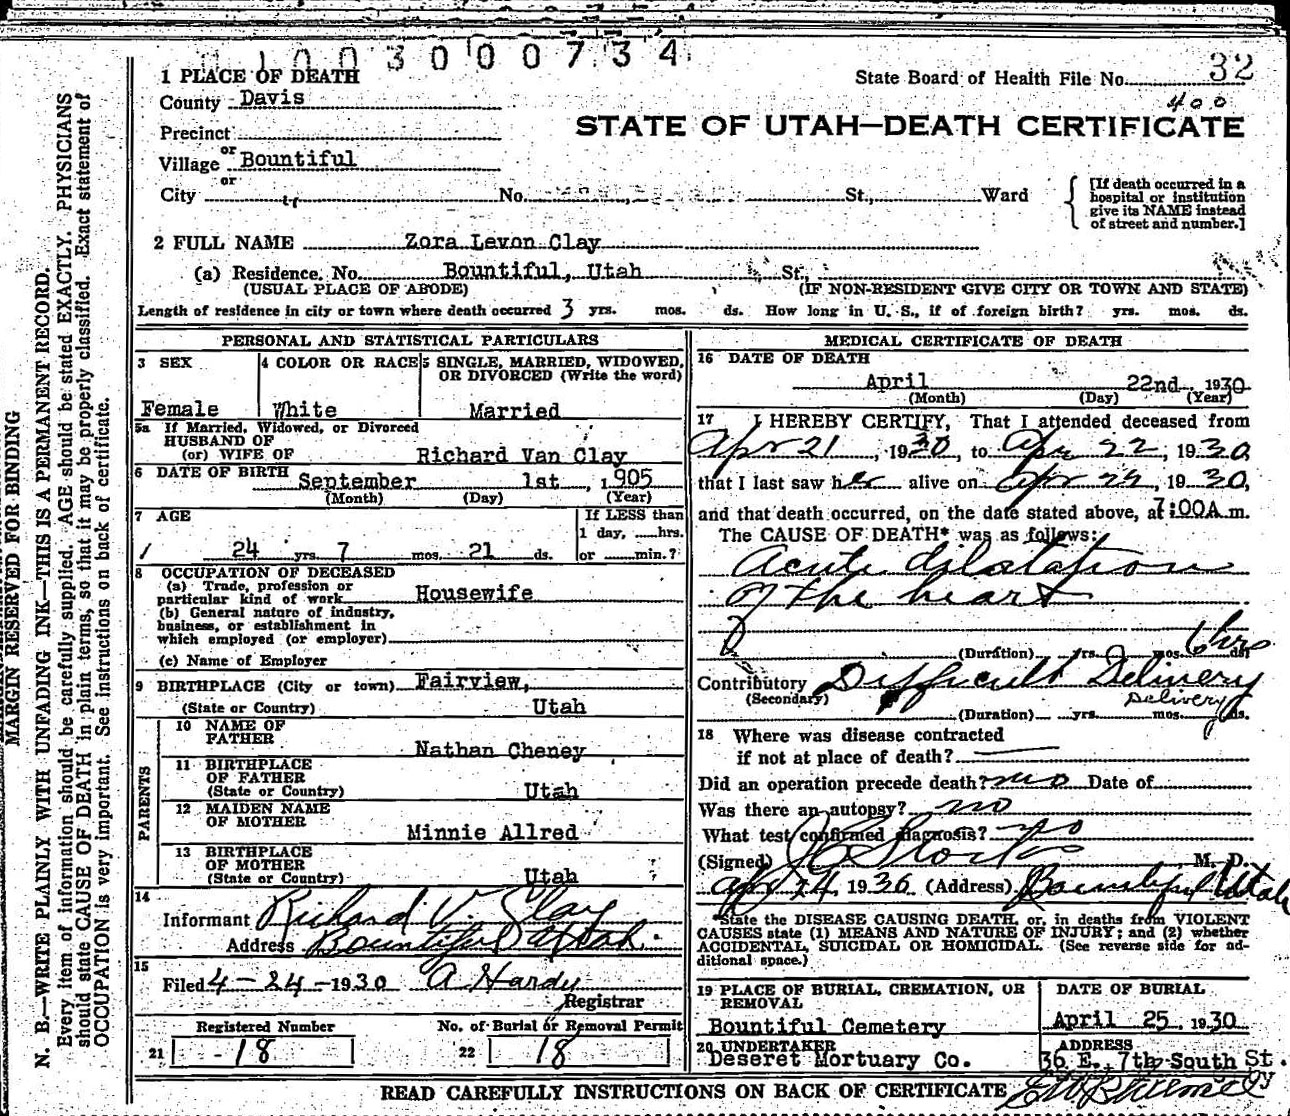 01003000734
1 PLACE OF DEATH
State Board of Health File No. 32
County Davis
400
STATE OF UTAH—DEATH CERTIFICATE
Precinct
or
Village Bountiful
or
City No. St., Ward
[If death occurred in a
hospital or institution
give its NAME instead
of street and number.]
2 FULL NAME Zora Levon Clay
(a) Residence. No. Bountiful, Utah St.,
(USUAL PLACE OF ABODE) (IF NON-RESIDENT GIVE CITY OR TOWN AND STATE)
Length of residence in city or town where death occurred 3 yrs. mos. ds. How long in U. S., if of foreign birth? yrs. mos. ds.
PERSONAL AND STATISTICAL PARTICULARS
3 SEX
Female
4 COLOR OR RACE
White
5 SINGLE, MARRIED, WIDOWED,
OR DIVORCED (Write the word)
Married
5a If Married, Widowed, or Divorced
HUSBAND OF
(or) WIFE OF Richard Van Clay
6 DATE OF BIRTH September 1st, 1905
(Month) (Day) (Year)
7 AGE
24 yrs. 7 mos. 21 ds.
If LESS than
1 day, hrs.
or min.?
8 OCCUPATION OF DECEASED
(a) Trade, profession or
particular kind of work Housewife
(b) General nature of industry,
business, or establishment in
which employed (or employer)
(c) Name of Employer
9 BIRTHPLACE (City or town) Fairview,
(State or Country) Utah
PARENTS
10 NAME OF
FATHER Nathan Cheney
11 BIRTHPLACE
OF FATHER
(State or Country) Utah
12 MAIDEN NAME
OF MOTHER Minnie Allred
13 BIRTHPLACE
OF MOTHER
(State or Country) Utah
14
Informant Richard V. Clay
Address Bountiful Utah.
15
Filed 4-24-1930 A Hardy
Registrar
Registered Number
21 18
No. of Burial or Removal Permit
22 18
MEDICAL CERTIFICATE OF DEATH
16 DATE OF DEATH
April 22nd, 1930
(Month) (Day) (Year)
17 I HEREBY CERTIFY, That I attended deceased from
Apr 21, 1930, to Apr 22, 1930
that I last saw her alive on Apr, 1930,
and that death occurred, on the date stated above, at 7:00A.m.
The CAUSE OF DEATH* was as follows:
Acute dilatation
of the heart
(Duration) yrs. mos. 6 hrs ds.
Contributory Difficult Delivery
(Secondary) Delivery
(Duration) yrs. mos. ds.
18 Where was disease contracted
if not at place of death?
Did an operation precede death? no Date of
Was there an autopsy? no
What test confirmed diagnosis? no
(Signed) M. D.
Apr 24, 1930 (Address) Bountiful Utah
*State the DISEASE CAUSING DEATH, or, in deaths from VIOLENT
CAUSES state (1) MEANS AND NATURE OF INJURY; and (2) whether
ACCIDENTAL, SUICIDAL OR HOMICIDAL. (See reverse side for ad-
ditional space.)
19 PLACE OF BURIAL, CREMATION, OR
REMOVAL
Bountiful Cemetery
DATE OF BURIAL
April 25, 1930
20 UNDERTAKER
Deseret Mortuary Co.
ADDRESS
36 E. 7th South St.
READ CAREFULLY INSTRUCTIONS ON BACK OF CERTIFICATE
MARGIN RESERVED FOR BINDING
N. B.—WRITE PLAINLY WITH UNFADING INK—THIS IS A PERMANENT RECORD.
Every item of information should be carefully supplied. AGE should be stated EXACTLY. PHYSICIANS
should state CAUSE OF DEATH in plain terms, so that it may be properly classified. Exact statement of
OCCUPATION is very important. See instructions on back of certificate.